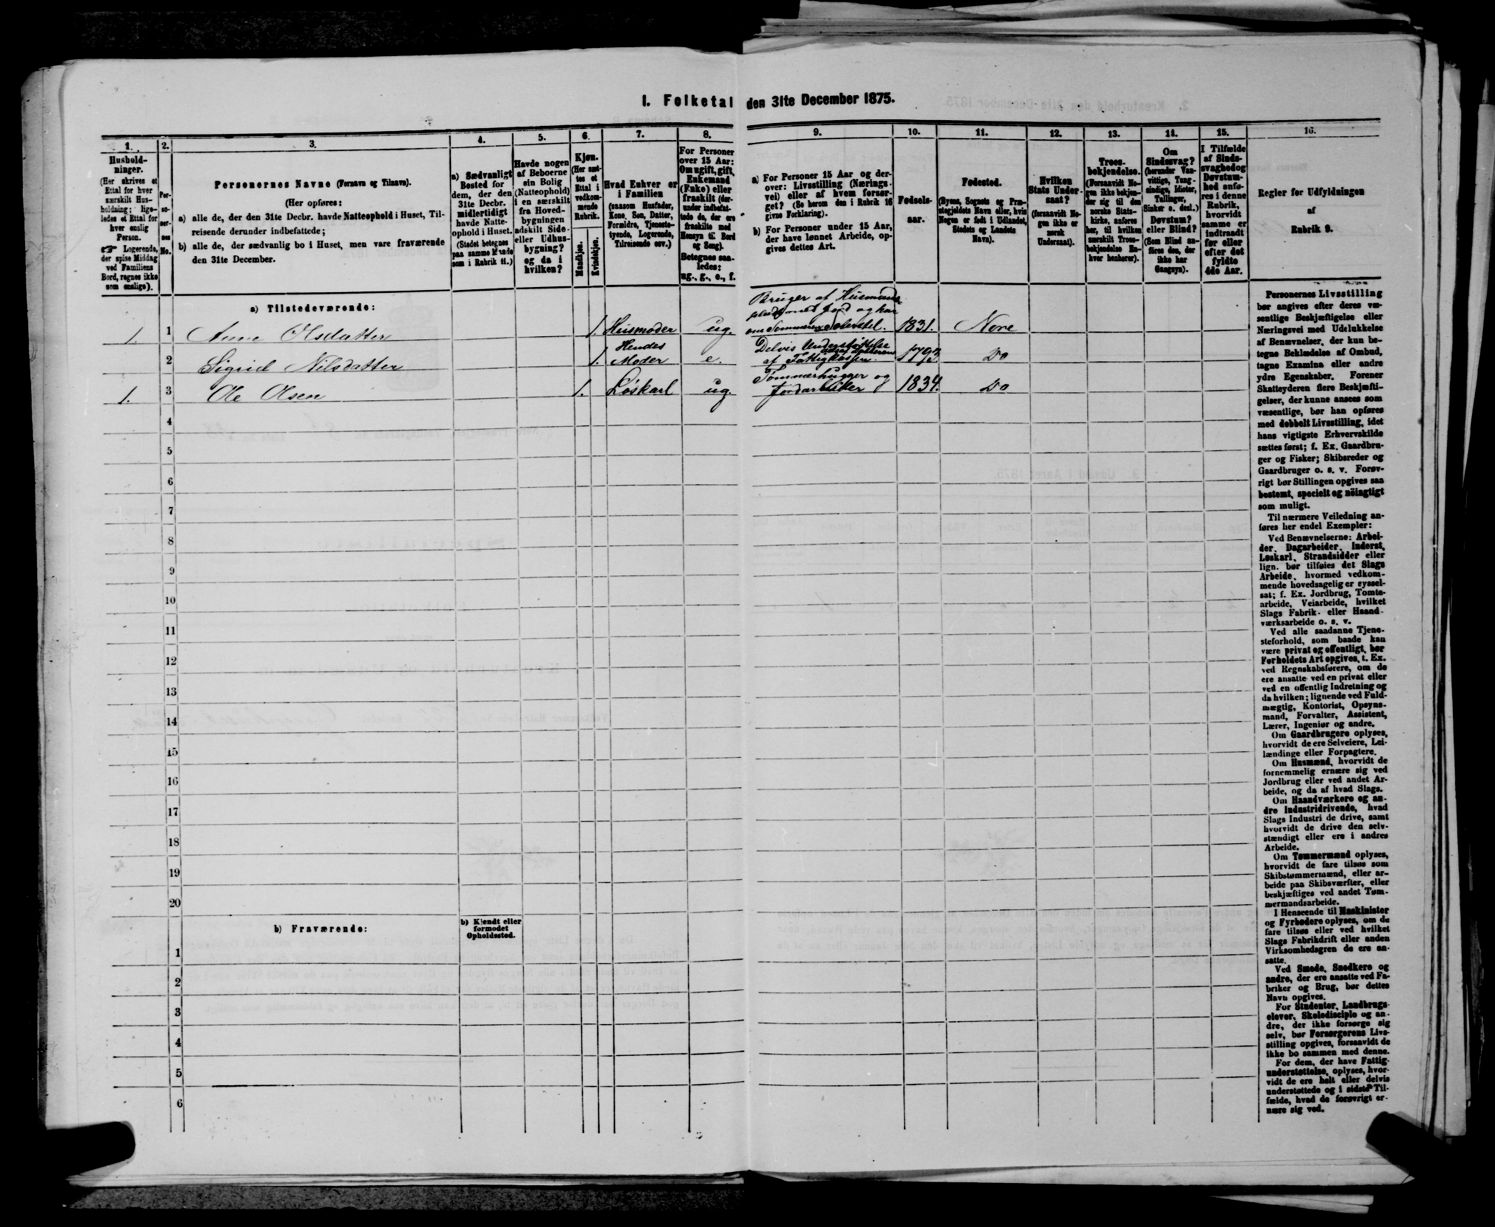 I. Folketal den 31te December 1875.
1.
Hushold-
ninger.
(Her skrives et
Ettal for hver
særskilt Hus-
holdning; lige-
ledes et Ettal for
hver enslig
Person.
☞ Logerende,
der spise Middag
ved Familiens
Bord, regnes ikke
som enslige).
2.
Per-
so-
ner-
nes
No.
3.
Personernes Navne (Fornavn og Tilnavn).
(Her opføres:
a) alle de, der den 31te Decbr. havde Natteophold i Huset, Til-
reisende derunder indbefattede;
b) alle de, der sædvanlig bo i Huset, men vare fraværende
den 31te December.
4.
a) Sædvanligt
Bosted for
dem, der den
31te Decbr.
midlertidigt
havde Natte-
ophold i Huset.
(Stedet betegnes
paa samme Maade
som i Rubrik 11.)
5.
Havde nogen
af Beboerne
sin Bolig
(Natteophold)
i en særskilt
fra Hoved-
bygningen
adskilt Side-
eller Udhus-
bygning?
og da i
hvilken?
6.
Kjøn.
(Her sæt-
tes et
Ettal i
vedkom-
mende
Rubrik.
Mandkjøn.
Kvindekjøn.
7.
Hvad Enhver er
i Familien
(saasom Husfader,
Kone, Søn, Datter,
Forældre, Tjeneste-
tyende, Logerende,
Tilreisende osv.)
8.
For Personer
over 15 Aar:
Om ugift, gift,
Enkemand
(Enke) eller
fraskilt (der-
under indbefat-
tede de, der ere
fraskilte med
Hensyn til Bord
og Seng).
Betegnes saa-
ledes:
ug., g., e., f.
9.
a) For Personer 15 Aar og der-
over: Livsstilling (Nærings-
vei) eller af hvem forsør-
get? (Se herom den i Rubrik 16
givne Forklaring).
b) For Personer under 15 Aar,
der have lønnet Arbeide, op-
gives dettes Art.
10.
Fødsels-
aar.
11.
Fødested.
(Byens, Sognets og Præ-
stegjeldets Navn eller, hvis
Nogen er født i Udlandet,
Stedets og Landets
Navn).
12.
Hvilken
Stats Under-
saat?
(forsaavidt No-
gen ikke er
norsk
Undersaat).
13.
Troes-
bekjendelse.
(Forsaavidt No-
gen ikke bekjen-
der sig til den
norske Stats-
kirke, anføres
her, til hvilken
særskilt Troes-
bekjendelse En-
hver henhører).
14.
Om
Sindssvag?
(herunder Van-
vittige, Tung-
sindige, Idioter,
Tullinger,
Sinker o. desl.)
Døvstum?
eller Blind?
(Som Blind an-
føres den, der
ikke har
Gangsyn).
15.
I Tilfælde
af Sinds-
svaghed og
Døvstum-
hed anfø-
res i denne
Rubrik,
hvorvidt
samme er
indtraadt
før eller
efter det
fyldte
4de Aar.
16.
Regler for Udfyldningen
af
Rubrik 9.
a) Tilstedeværende:
1. 1 Anne Olsdatter 1. Husmoder ug. Bruger af Husmands 1831. Nore
2 Sigrid Nilsdatter 1. Hendes Moder e. Delvis Understøttelse af Fattigkassen 1793. Do
1. 3 Ole Olsen 1. Løskarl ug. Tømmerhugger og Jordarbeider 1834. Do
4
5
6
7
8
9
10
11
12
13
14
15
16
17
18
19
20
b) Fraværende:
b) Kjendt eller
formodet
Opholdssted.
1
2
3
4
5
6
Personernes Livsstilling
bør angives efter deres væ-
sentlige Beskjæftigelse eller
Næringsvei med Udelukkelse
af Benævnelser, der kun be-
tegne Beklædelse af Ombud,
tagne Examina eller andre
ydre Egenskaber. Forener
Skatteyderen flere Beskjæfti-
gelser, der kunne ansees som
væsentlige, bør han opføres
med dobbelt Livsstilling, idet
hans vigtigste Erhvervskilde
sættes først; f. Ex. Gaardbru-
ger og Fisker; Skibsreder og
Gaardbruger o. s. v. Forøv-
rigt bør Stillingen opgives saa
bestemt, specielt og nöiagtigt
som muligt.
Til nærmere Veiledning an-
føres her endel Exempler:
Ved Benævnelserne: Arbei-
der, Dagarbeider, Inderst,
Løskarl, Strandsidder eller
lign. bør tilføies det Slags
Arbeide, hvormed vedkom-
mende hovedsagelig er syssel-
sat; f. Ex. Jordbrug, Tomte-
arbeide, Veiarbeide, hvilket
Slags Fabrik- eller Haand-
værksarbeide o. s. v.
Ved alle saadanne Tjene-
steforhold, som baade kan
være privat og offentligt, bør
Forholdets Art opgives, f. Ex.
ved Regnskabsførere, om de
ere ansatte ved en privat eller
ved en offentlig Indretning og
da hvilken; lignende ved Fuld-
mægtig, Kontorist, Opsyns-
mand, Forvalter, Assistent,
Lærer, Ingeniør og andre.
Om Gaardbrugere oplyses,
hvorvidt de ere Selveiere, Lei-
lændinge eller Forpagtere.
Om Husmænd, hvorvidt de
fornemmelig ernære sig ved
Jordbrug eller ved andet Ar-
beide, og da af hvad Slags.
Om Haandværkere og an-
dre Industridrivende, hvad
Slags Industri de drive, samt
hvorvidt de drive den selv-
stændigt eller ere i andres
Arbeide.
Om Tømmermænd oplyses,
hvorvidt de fare tilsøs som
Skibstømmermænd, eller ar-
beide paa Skibsværfter, eller
beskjæftiges ved andet Tøm-
mermandsarbeide.
I Henseende til Maskinister
og Fyrbødere oplyses, om de
fare tilsøs eller ved hvilket
Slags Fabrikdrift eller anden
Virksomhedsgren de ere an-
satte.
Ved Smede, Snedkere og
andre, der ere ansatte ved Fa-
briker og Brug, bør dettes
Navn opgives.
For Studenter, Landbrugs-
elever, Skoledisciple og an-
dre, der ikke forsørge sig
selv, bør Forsørgerens Livs-
stilling opgives, forsaavidt de
ikke bo sammen med denne.
For dem, der have Fattig-
understøttelse, oplyses, hvor-
vidt de ere helt eller delvis
understøttede og i sidste Til-
fælde, hvad de forøvrigt er-
nære sig ved.